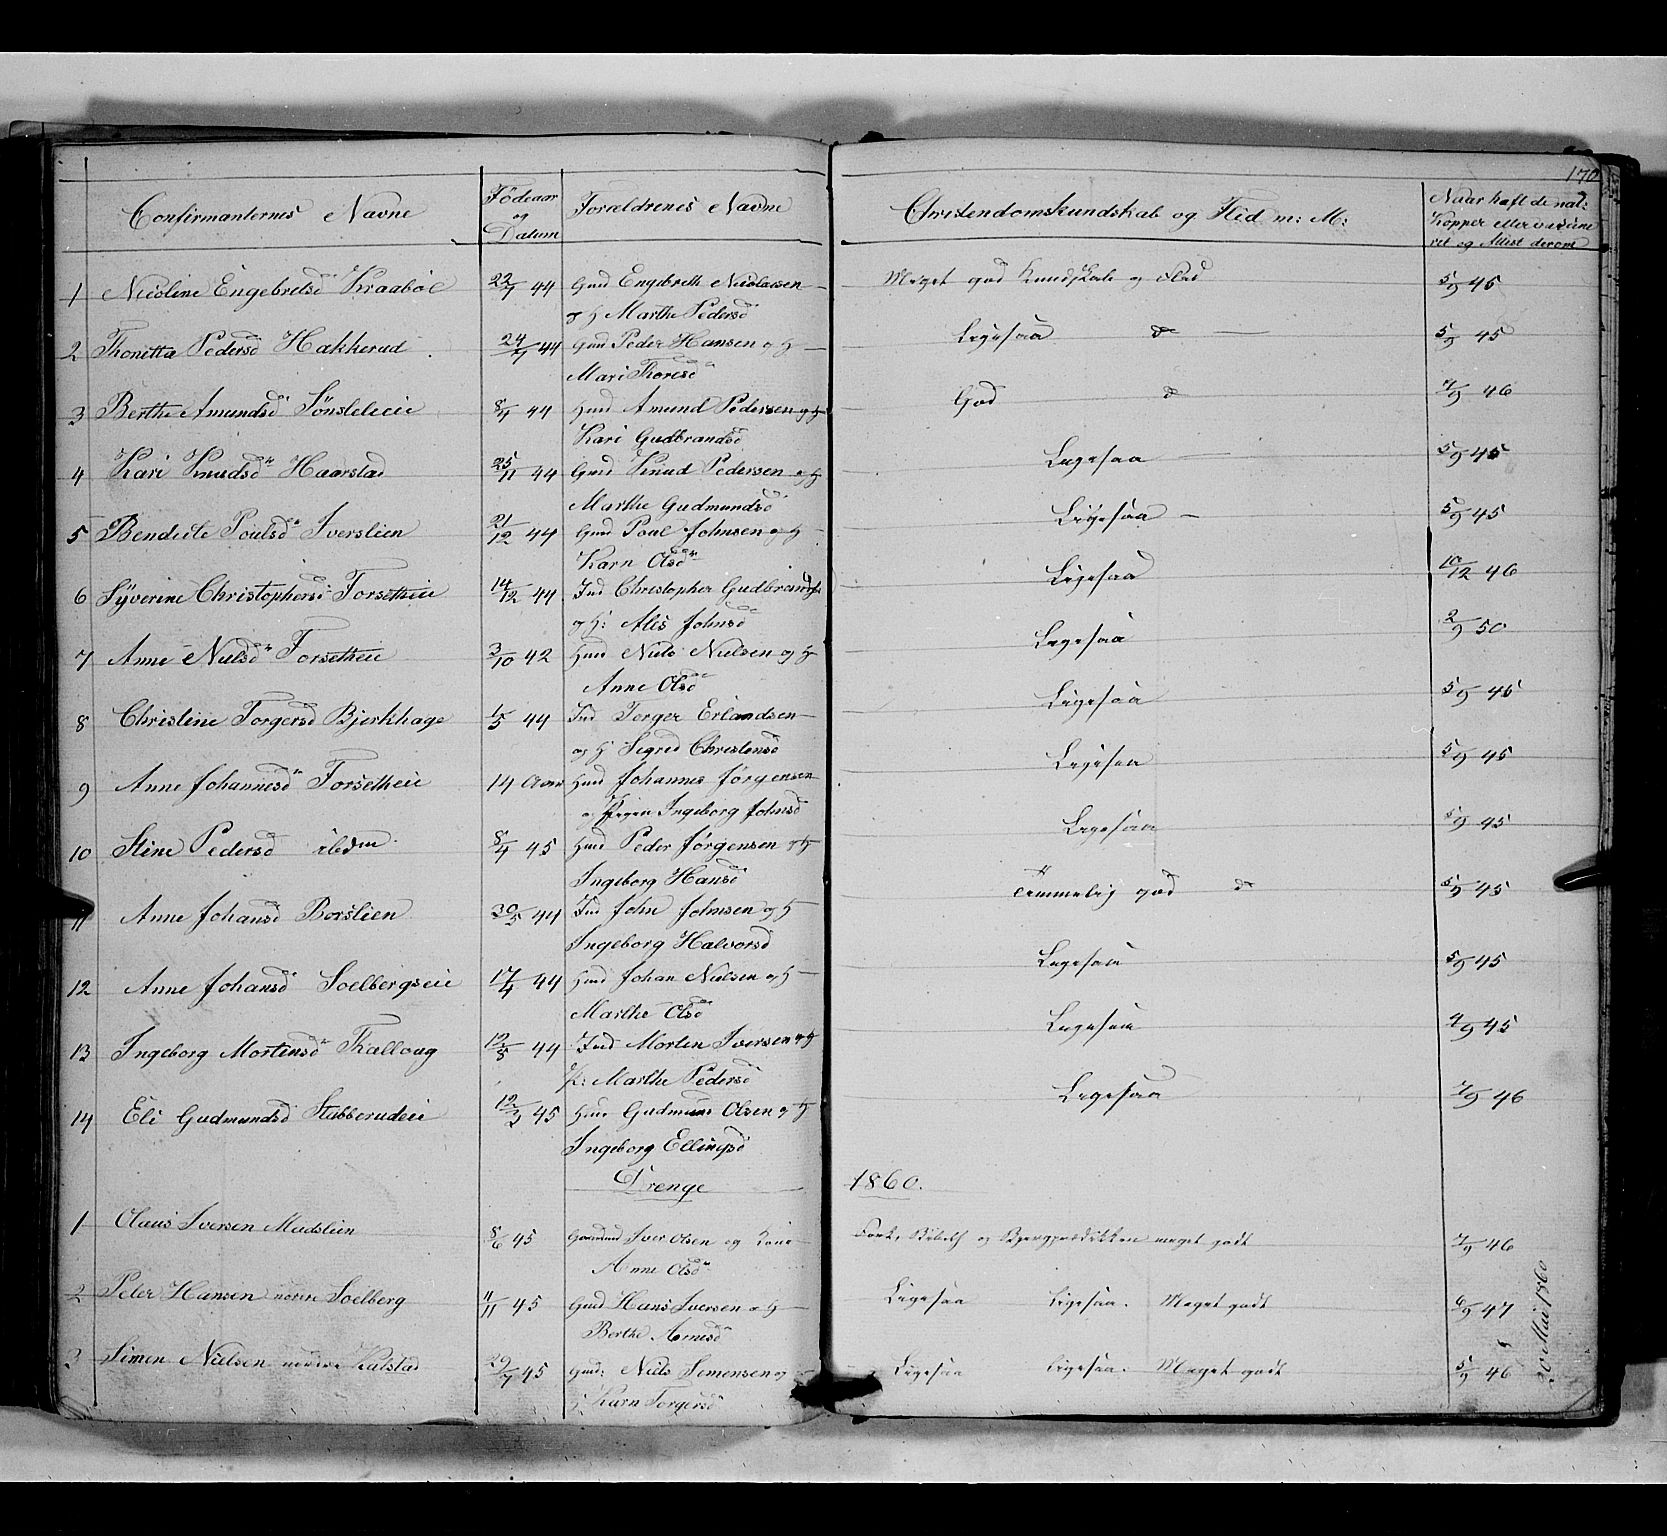 170
Confirmanternes Navne Fødeaar og Datum Forældrenes Navne Christendomskundskab og Flid m: M: Naar haft de nat: Kopper eller vaccine ret og Attest derom
1 Nicoline Engebretsd Kraabøl 22/7 44 Gmd Engebreth Nicolaisen Meget god Kundskab og Flid 5/9 45
og H Marthe Pedersd
2 Thonetta Pedersd Hakkerud 24/7 44 Gmd Peder Hansen og H Ligesaa d 5/9 45
Mari Thoresd
3 Berthe Amundsd Sønsteleeie 8/4 44 Hmd Amund Pedersen og H God d 4/9 46
Kari Gudbrandsd
4 Kari Knudsd Haarstad 25/11 44 Gmd Knud Pedersen og H Ligesaa 5/9 45
Marthe Gudmundsd
5 Bendicte Poulsd Iverslien 21/12 44 Gmd Poul Johnsen og H Ligesaa 5/9 45
Karn Olsd
6 Syverine Christophersd Forsetheie 14/12 44 Ind Christopher Gudbrands Ligesaa 10/12 46
og H: Alis Johnsd
7 Anne Nielsd Forsetheie 3/10 42 Hmd Niels Nielsen og H Ligesaa 2/9 50
Anne Olsd
8 Christine Torgersd Bjerkhage 1/5 44 Ind Torger Erlandsen Ligesaa 5/9 45
og H Sigrid Christensd
9 Anne Johannesd Forsetheie 14 Aar Hmd Johannes Jørgensen Ligesaa 5/9 45
o Pigen Ingeborg Johnsd
10 Stine Pedersd ibdm 8/4 45 Hmd Peder Jørgensen og H Ligesaa 5/9 45
Ingeborg Hansd
11 Anne Johansd Borslien 30/5 44 Ind John Johnsen og H Temmelig god d 5/9 45
Ingeborg Halvorsd
12 Anne Johansd Soelbergseie 17/4 44 Hmd Johan Nielsen og H Ligesaa 5/9 45
Marthe Olsd
13 Ingeborg Mortensd Kalloug 12/5 44 Ind Morten Iversen og H Ligesaa 4/9 45
K: Marthe Pedersd
14 Eli Gudmundsd Stubberudeie 12/3 45 Hmd Gudmund Olsen og H Ligesaa 7/9 46
Ingeborg Ellingsd
Drenge 1860.
1 Olaus Iversen Modslien 8/6 45 Gaardmd Iver Olsen og Kone Fork, Bibelh og Bjergprædikken meget godt 7/9 46
Anne Olsd
2 Peter Hansen nørre Soelberg 11/11 45 Gmd Hans Iversen og H Ligesaa Ligesaa. Meget godt 6/9 47
Berthe Arnesd
3 Simen Nielsen nedre Kalstad 29/7 45 Gmd: Niels Simensen og Ligesaa Ligesaa. Meget godt 5/9 46
H Karn Torgersd
20 Mai 1860